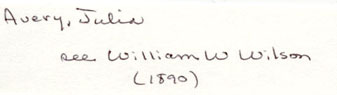 Avery, Julia
see William W Wilson
(1890)